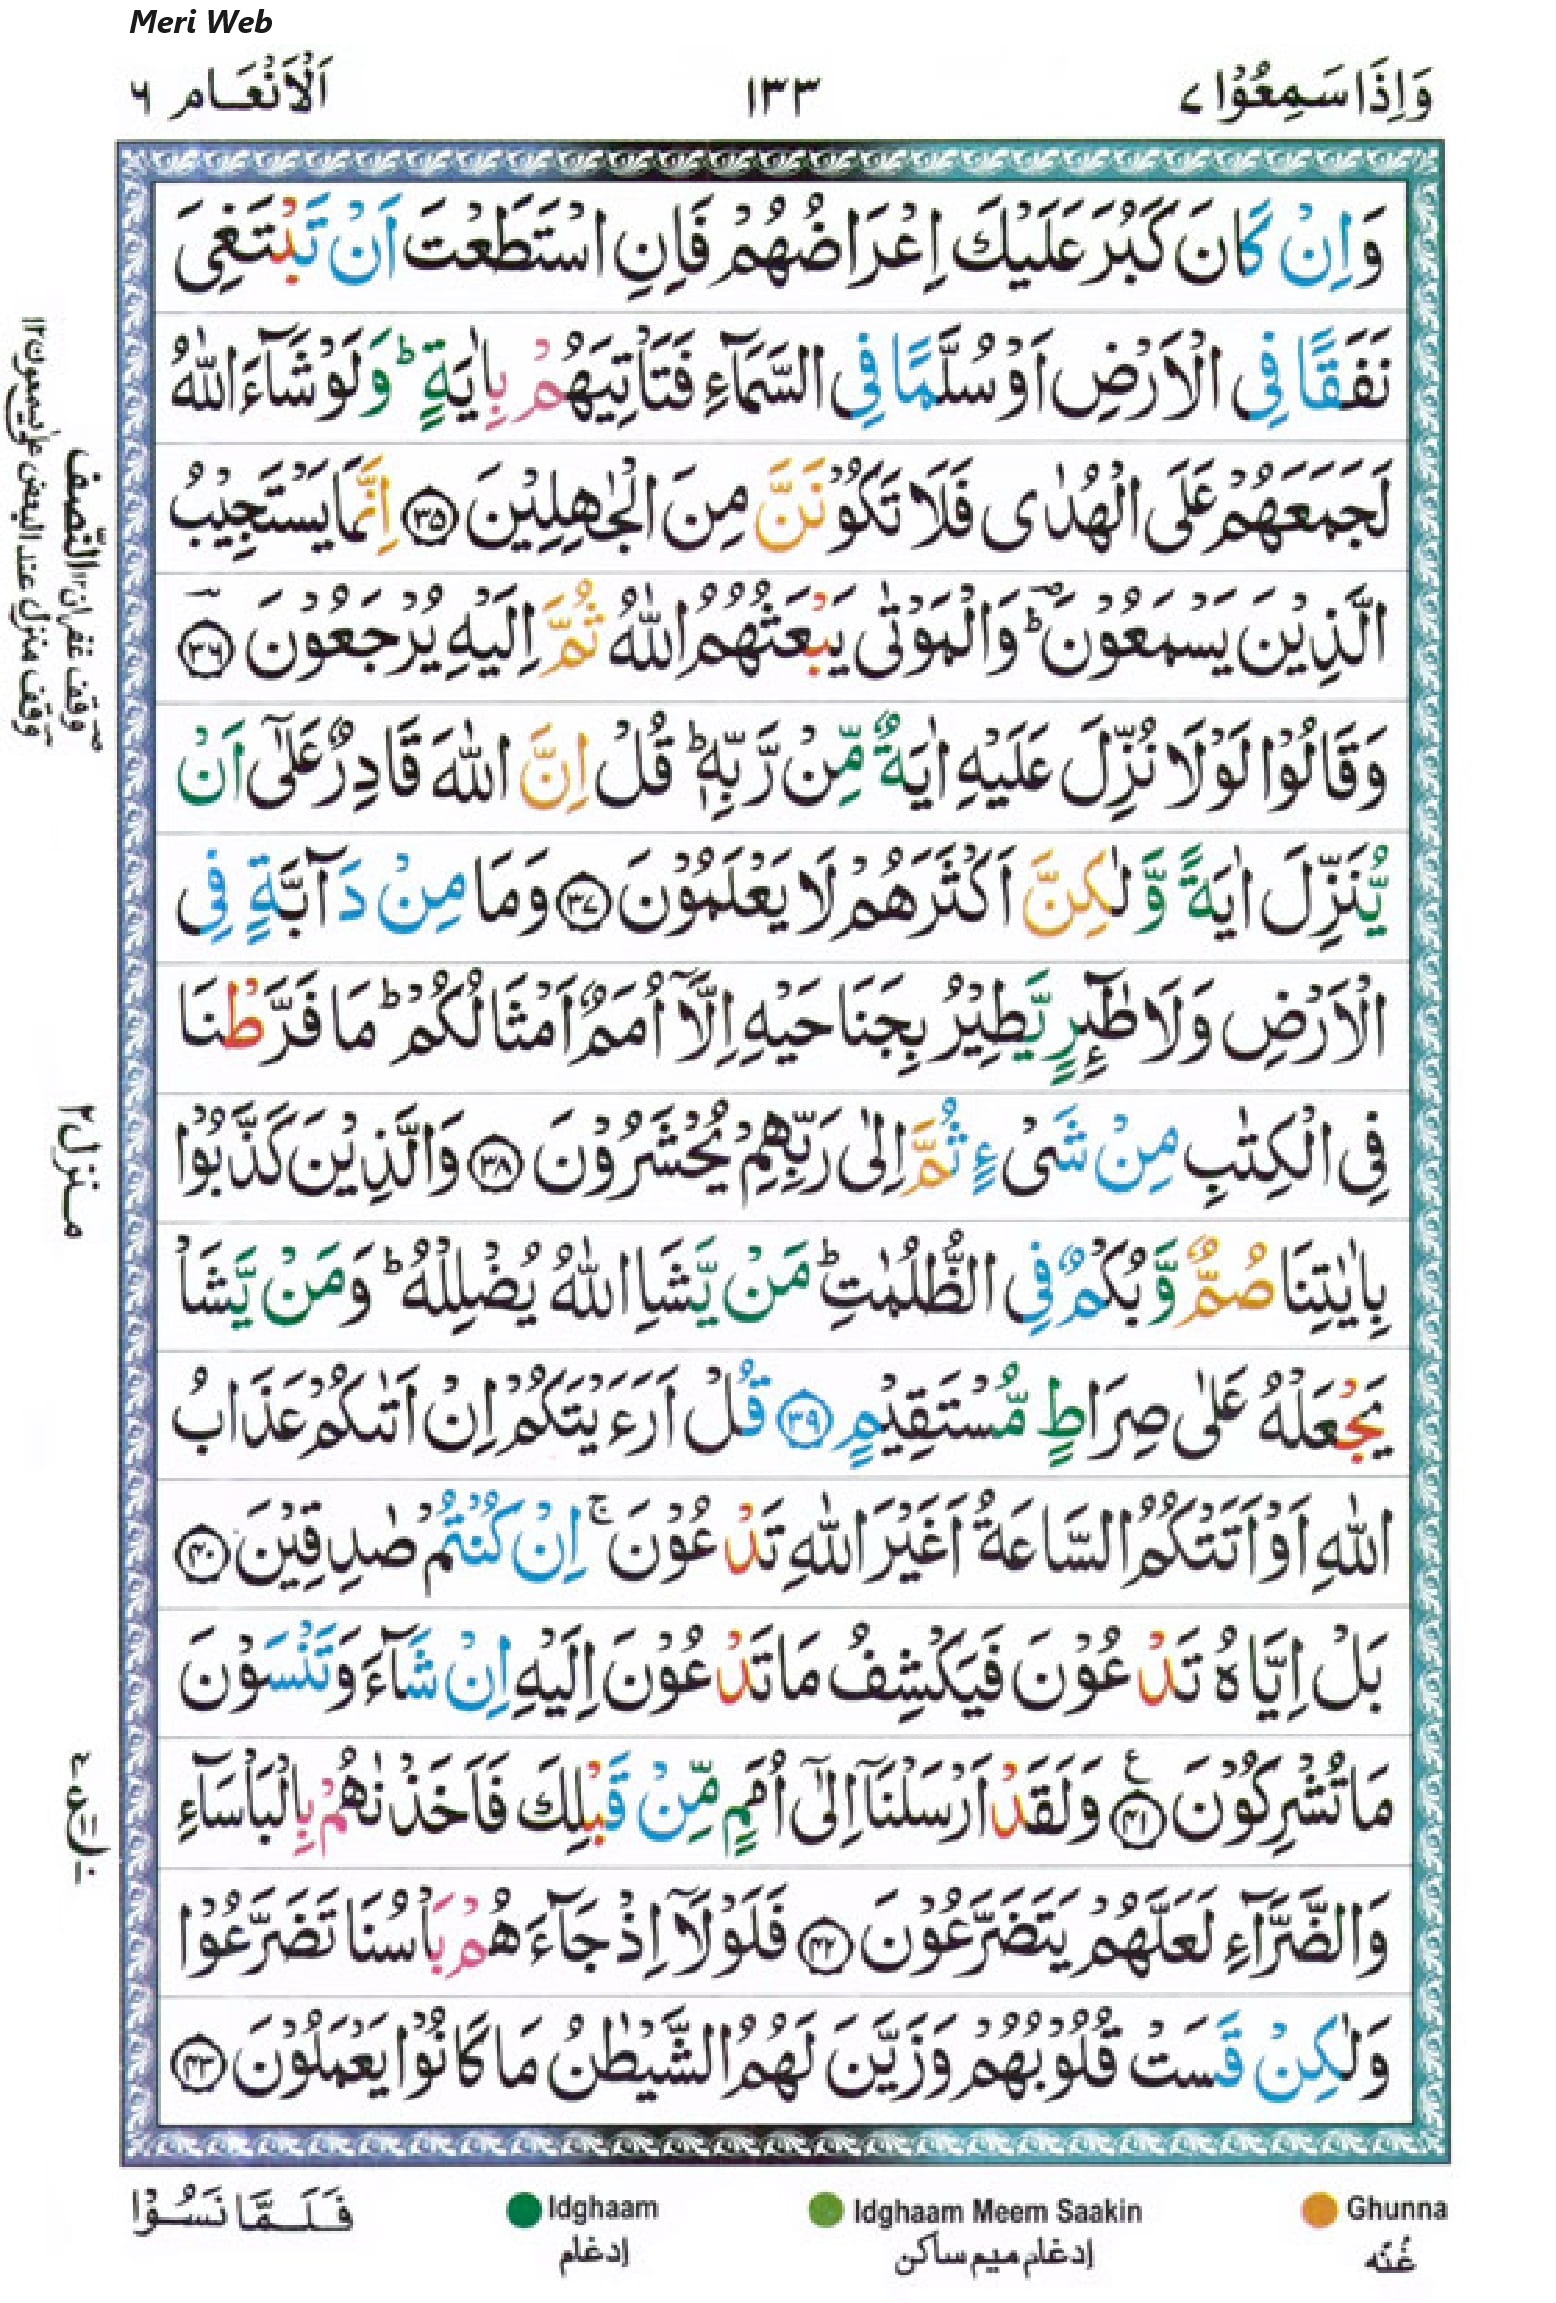 Meri Web
وَاِذَا سَمِعُوْا ٧
١٣٣
اَلْاَنْعَام ٦
وَاِنْ كَانَ كَبُرَ عَلَيْكَ اِعْرَاضُهُمْ فَاِنِ اسْتَطَعْتَ اَنْ تَبْتَغِىَ
نَفَقًا فِى الْاَرْضِ اَوْ سُلَّمًا فِى السَّمَآءِ فَتَاْتِيَهُمْ بِاٰيَةٍ ؕ وَلَوْ شَآءَ اللّٰهُ
لَجَمَعَهُمْ عَلَى الْهُدٰى فَلَا تَكُوْنَنَّ مِنَ الْجٰهِلِيْنَ ﴿٣٥﴾ اِنَّمَا يَسْتَجِيْبُ
الَّذِيْنَ يَسْمَعُوْنَ ؕ وَالْمَوْتٰى يَبْعَثُهُمُ اللّٰهُ ثُمَّ اِلَيْهِ يُرْجَعُوْنَ ﴿٣٦﴾
وَقَالُوْا لَوْلَا نُزِّلَ عَلَيْهِ اٰيَةٌ مِّنْ رَّبِّهٖ ؕ قُلْ اِنَّ اللّٰهَ قَادِرٌ عَلٰٓى اَنْ
يُّنَزِّلَ اٰيَةً وَّلٰكِنَّ اَكْثَرَهُمْ لَا يَعْلَمُوْنَ ﴿٣٧﴾ وَمَا مِنْ دَآبَّةٍ فِى
الْاَرْضِ وَلَا طٰٓئِرٍ يَّطِيْرُ بِجَنَاحَيْهِ اِلَّاۤ اُمَمٌ اَمْثَالُكُمْ ؕ مَا فَرَّطْنَا
فِى الْكِتٰبِ مِنْ شَىْءٍ ثُمَّ اِلٰى رَبِّهِمْ يُحْشَرُوْنَ ﴿٣٨﴾ وَالَّذِيْنَ كَذَّبُوْا
بِاٰيٰتِنَا صُمٌّ وَّبُكْمٌ فِى الظُّلُمٰتِ ؕ مَنْ يَّشَاِ اللّٰهُ يُضْلِلْهُ ؕ وَمَنْ يَّشَاْ
يَجْعَلْهُ عَلٰى صِرَاطٍ مُّسْتَقِيْمٍ ﴿٣٩﴾ قُلْ اَرَءَيْتَكُمْ اِنْ اَتٰىكُمْ عَذَابُ
اللّٰهِ اَوْ اَتَتْكُمُ السَّاعَةُ اَغَيْرَ اللّٰهِ تَدْعُوْنَ ۚ اِنْ كُنْتُمْ صٰدِقِيْنَ ﴿٤٠﴾
بَلْ اِيَّاهُ تَدْعُوْنَ فَيَكْشِفُ مَا تَدْعُوْنَ اِلَيْهِ اِنْ شَآءَ وَتَنْسَوْنَ
مَا تُشْرِكُوْنَ ﴿٤١﴾ ع وَلَقَدْ اَرْسَلْنَاۤ اِلٰٓى اُمَمٍ مِّنْ قَبْلِكَ فَاَخَذْنٰهُمْ بِالْبَاْسَآءِ
وَالضَّرَّآءِ لَعَلَّهُمْ يَتَضَرَّعُوْنَ ﴿٤٢﴾ فَلَوْلَاۤ اِذْ جَآءَهُمْ بَاْسُنَا تَضَرَّعُوْا
وَلٰكِنْ قَسَتْ قُلُوْبُهُمْ وَزَيَّنَ لَهُمُ الشَّيْطٰنُ مَا كَانُوْا يَعْمَلُوْنَ ﴿٤٣﴾
النّصف
وقف غفران ١٢
وقف منزل عند البعض علٰى يسمعون ١٢
منزل ٢
فَلَمَّا نَسُوْا
Idghaam
ادغام
Idghaam Meem Saakin
ادغام ميم ساكن
Ghunna
غُنّه